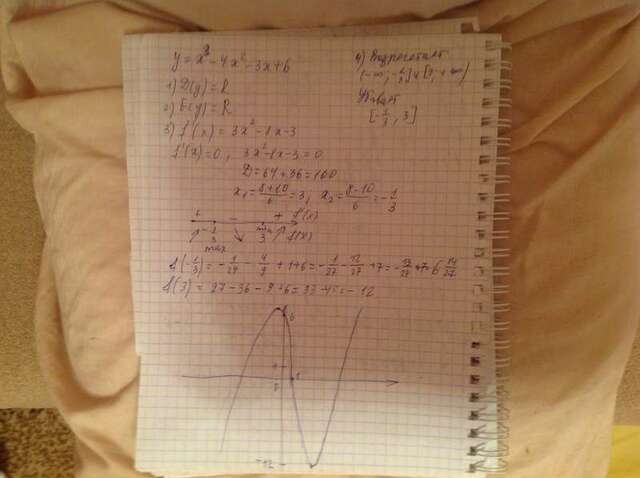 y = x³ - 4x² - 3x + 6
1) D(y) = R
2) E(y) = R
3) f'(x) = 3x² - 8x - 3
f'(x) = 0, 3x² - 8x - 3 = 0
D = 64 + 36 = 100
x₁ = (8+10)/6 = 3; x₂ = (8-10)/6 = -1/3
+ - + f'(x)
-1/3 3 f(x)
max min
f(-1/3) = -1/27 - 4/9 + 1 + 6 = -1/27 - 12/27 + 7 = -13/27 + 7 = 6 14/27
f(3) = 27 - 36 - 9 + 6 = 33 - 45 = -12
6
1
0 1
-12
4) Возрастает
(-∞; -1/3] ∪ [3; +∞)
Убывает
[-1/3; 3]